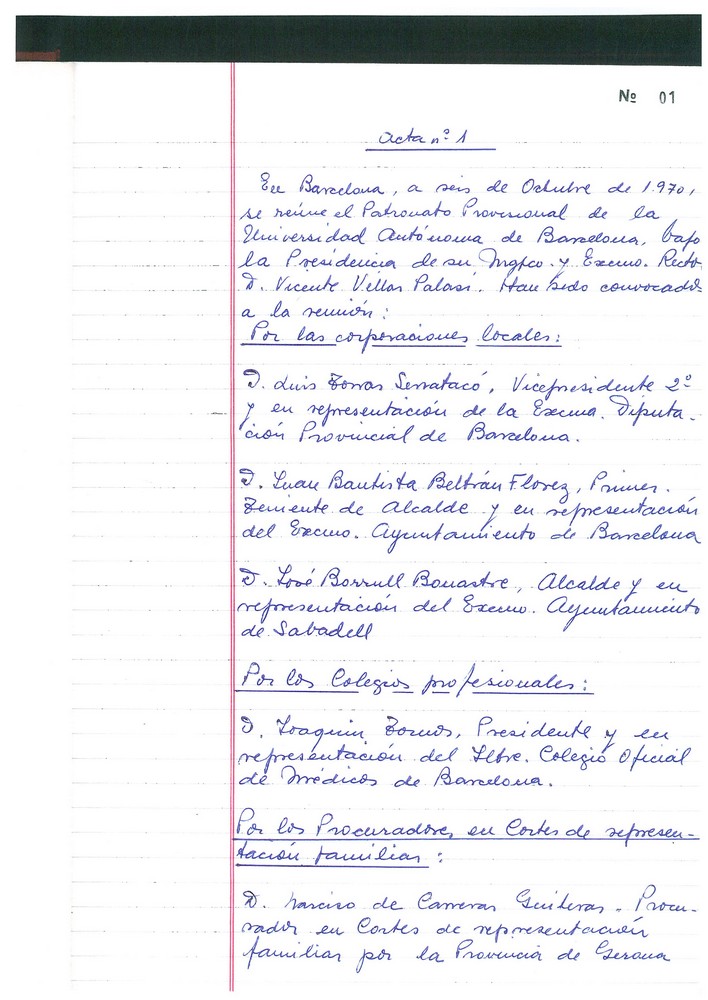 Nº 01
Acta nº 1
En Barcelona, a seis de Octubre de 1.970,
se reúne el Patronato Provisional de la
Universidad Autónoma de Barcelona, bajo
la Presidencia de su Mgfco. y Excmo. Rector
D. Vicente Villar Palasí. Han sido convocados
a la reunión:
Por las corporaciones locales:
D. Luis Torras Serratacó, Vicepresidente 2º
y en representación de la Excma. Diputa-
ción Provincial de Barcelona.
D. Juan Bautista Beltrán Florez, Primer.
Teniente de Alcalde y en representación
del Excmo. Ayuntamiento de Barcelona
D. José Borrull Bonastre, Alcalde y en
representación del Excmo. Ayuntamiento
de Sabadell
Por los Colegios profesionales:
D. Joaquin Tornos, Presidente y en
representación del Iltre. Colegio Oficial
de Médicos de Barcelona.
Por los Procuradores en Cortes de represen-
tación familiar:
D. Narciso de Carreras Guiteras. Procu-
rador en Cortes de representación
familiar por la Provincia de Gerona